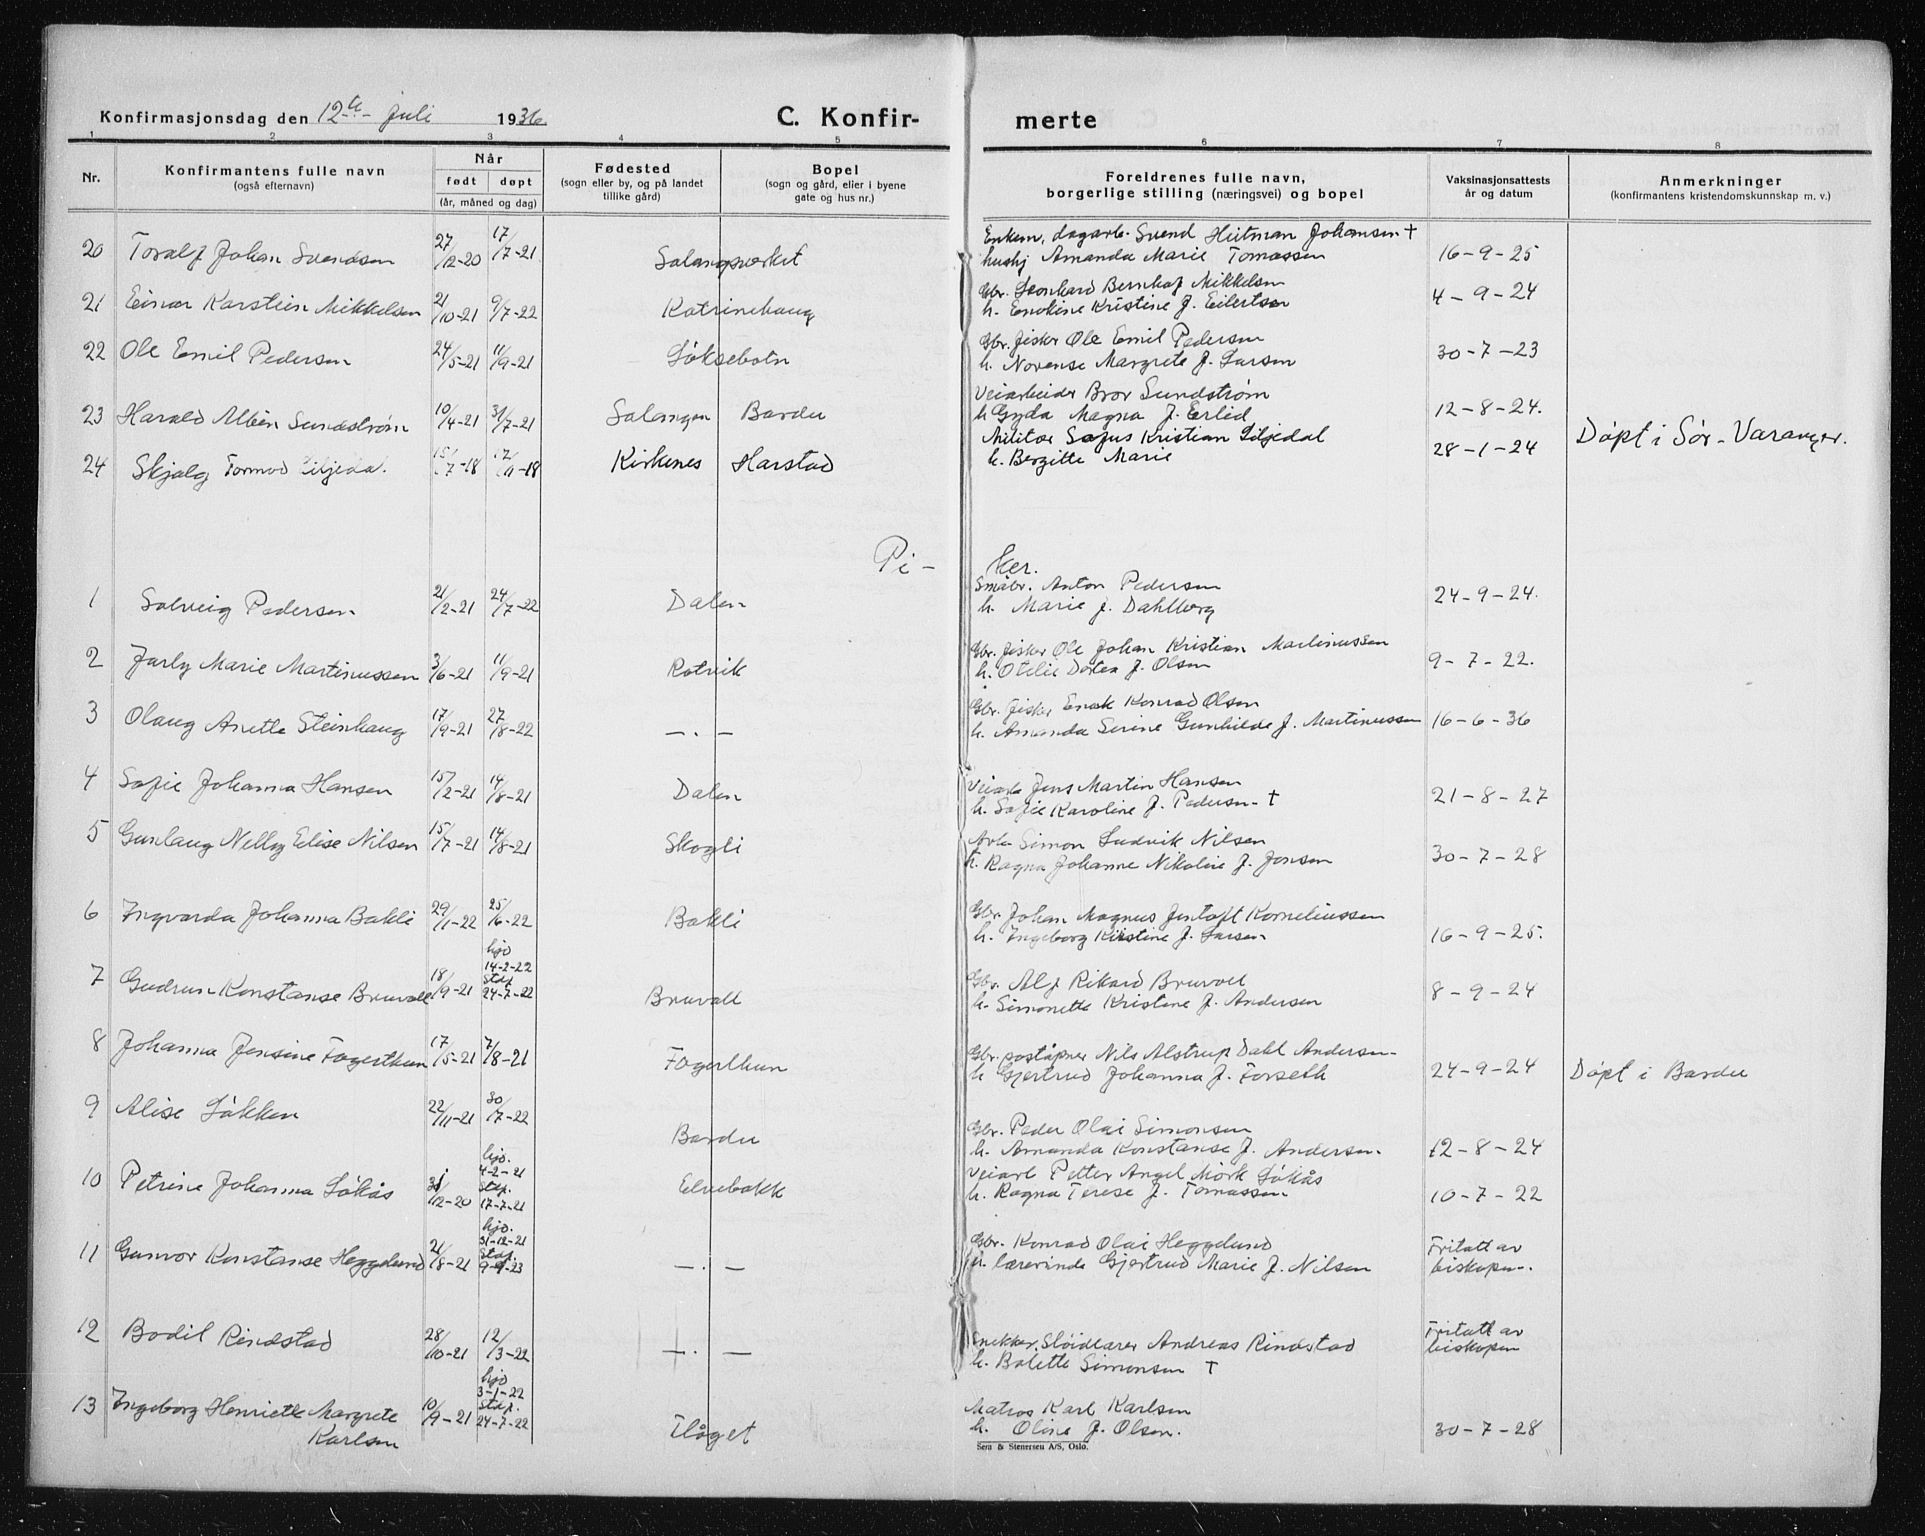 Konfirmasjonsdag den 12te Juli 1936 C. Konfir- merte
1 2 3 4 5 6 7 8
Nr. Konfirmantens fulle navn (også efternavn) Når født døpt (år, måned og dag) Fødested (sogn eller by, og på landet tillike gård) Bopel (sogn og gård, eller i byene gate og hus nr.) Foreldrenes fulle navn, borgerlige stilling (næringsvei) og bopel Vaksinasjonsattests år og datum Anmerkninger (konfirmantens kristendomskunnskap m. v.)
20 Toralf Johan Svendsen 27/12-20 17/7-21 Salangsverket Enkem. dagarb. Svend Hitman Johansen †
hushj Amanda Marie Tomassen 16-9-25
21 Einar Karstein Mikkelsen 21/10-21 9/7-22 Katrinehaug Gbr. Leonhard Bernhof Mikkelsen
h. Enokine Kristine f. Eilertsen 4-9-24
22 Ole Emil Pedersen 24/5-21 11/9-21 Løksebotn Gbr. fisker Ole Emil Pedersen
h. Norense Margrete f. Larsen 30-7-23
23 Harald Albin Sundstrøm 10/4-21 31/7-21 Salangen Bardu Veiarbeider Bror Sundstrøm
h Gyda Magna f. Erlid 12-8-24.
24 Skjalg Tormod Liljedal. 15/7-18 17/11-18 Kirkenes Harstad Militær Sofus Kristian Liljedal
h. Bergitte Marie 28-1-24 Døpt i Sør-Varanger.
Pi- ker.
1 Solveig Pedersen 21/2-21 24/7-22 Dalen Småbr. Anton Pedersen
h. Marie f. Dahlberg 24-9-24.
2 Jarly Marie Martinussen 3/6-21 11/9-21 Rotvik Gbr. fisker Ole Johan Kristian Martinussen
h. Otelie Dortea f. Olsen 9-7-22.
3 Olaug Anette Steinhaug 17/9-21 27/8-22 —.— Gbr. fisker Enok Konrad Olsen
h. Amanda Serine Gunhilde f. Martinussen 16-6-36
4 Sofie Johanna Hansen 15/2-21 14/8-21 Dalen Veiarb Jens Martin Hansen
h. Sofie Karoline f. Pedersen † 21-8-27
5 Gunlaug Nelly Elise Nilsen 15/7-21 14/8-21 Skogli Arb. Simon Ludvik Nilsen
h. Ragna Johanne Nikoline f. Jensen 30-7-28
6 Ingvarda Johanna Bakli 29/1-22 25/6-22 Bakli Gbr. Johan Magnus Jentoft Korneliussen
h. Ingeborg Kirstine f. Larsen 16-9-25.
7 Gudrun Konstanse Bruvoll 18/9-21 hjd 14-2-22 Stdf. 24-7-22 Bruvoll Gbr. Alf Rikard Bruvoll
h. Simonette Kristine f. Andersen 8-9-24
8 Johanna Jensine Fagerthun 17/5-21 7/8-21 Fagerthun Gbr. poståpner Nils Alstrup Dahl Andersen
h Gjertrud Johanna f. Forseth 24-9-24 Døpt i Bardu
9 Alise Løkken 22/11-21 30/7-22 Bardu Gbr. Peder Olai Simonsen
h. Amanda Konstanse f. Andersen. 12-8-24
10 Petrine Johanna Løkås 31/12-20 hjd. 4-2-21 Stdf. 17-7-21 Elvebakk Veiarb Petter Angel Mørk Løkås
h. Ragna Terese f. Tomassen 10-7-22
11 Gunvor Konstanse Heggelund 21/8-21 hjd. 31-12-21 Stdf. 9-9-23 —.— Gbr. Konrad Olai Heggelund
h. lærerinde Gjertrud Marie f. Nilsen Fritatt av biskopen.
12 Bodil Rindstad 28/10-21 12/3-22 —.— Snekker, Sløidlærer Andreas Rindstad
h. Bolette Simonsen † Fritatt av biskopen
13 Ingeborg Henriette Margrete Karlsen 10/9-21 hjd 3-1-22 Stdf. 24-7-22 Flåget Matros Karl Karlsen
h. Oline f. Olsen. 30-7-28
Sem & Stenersen A/S, Oslo.